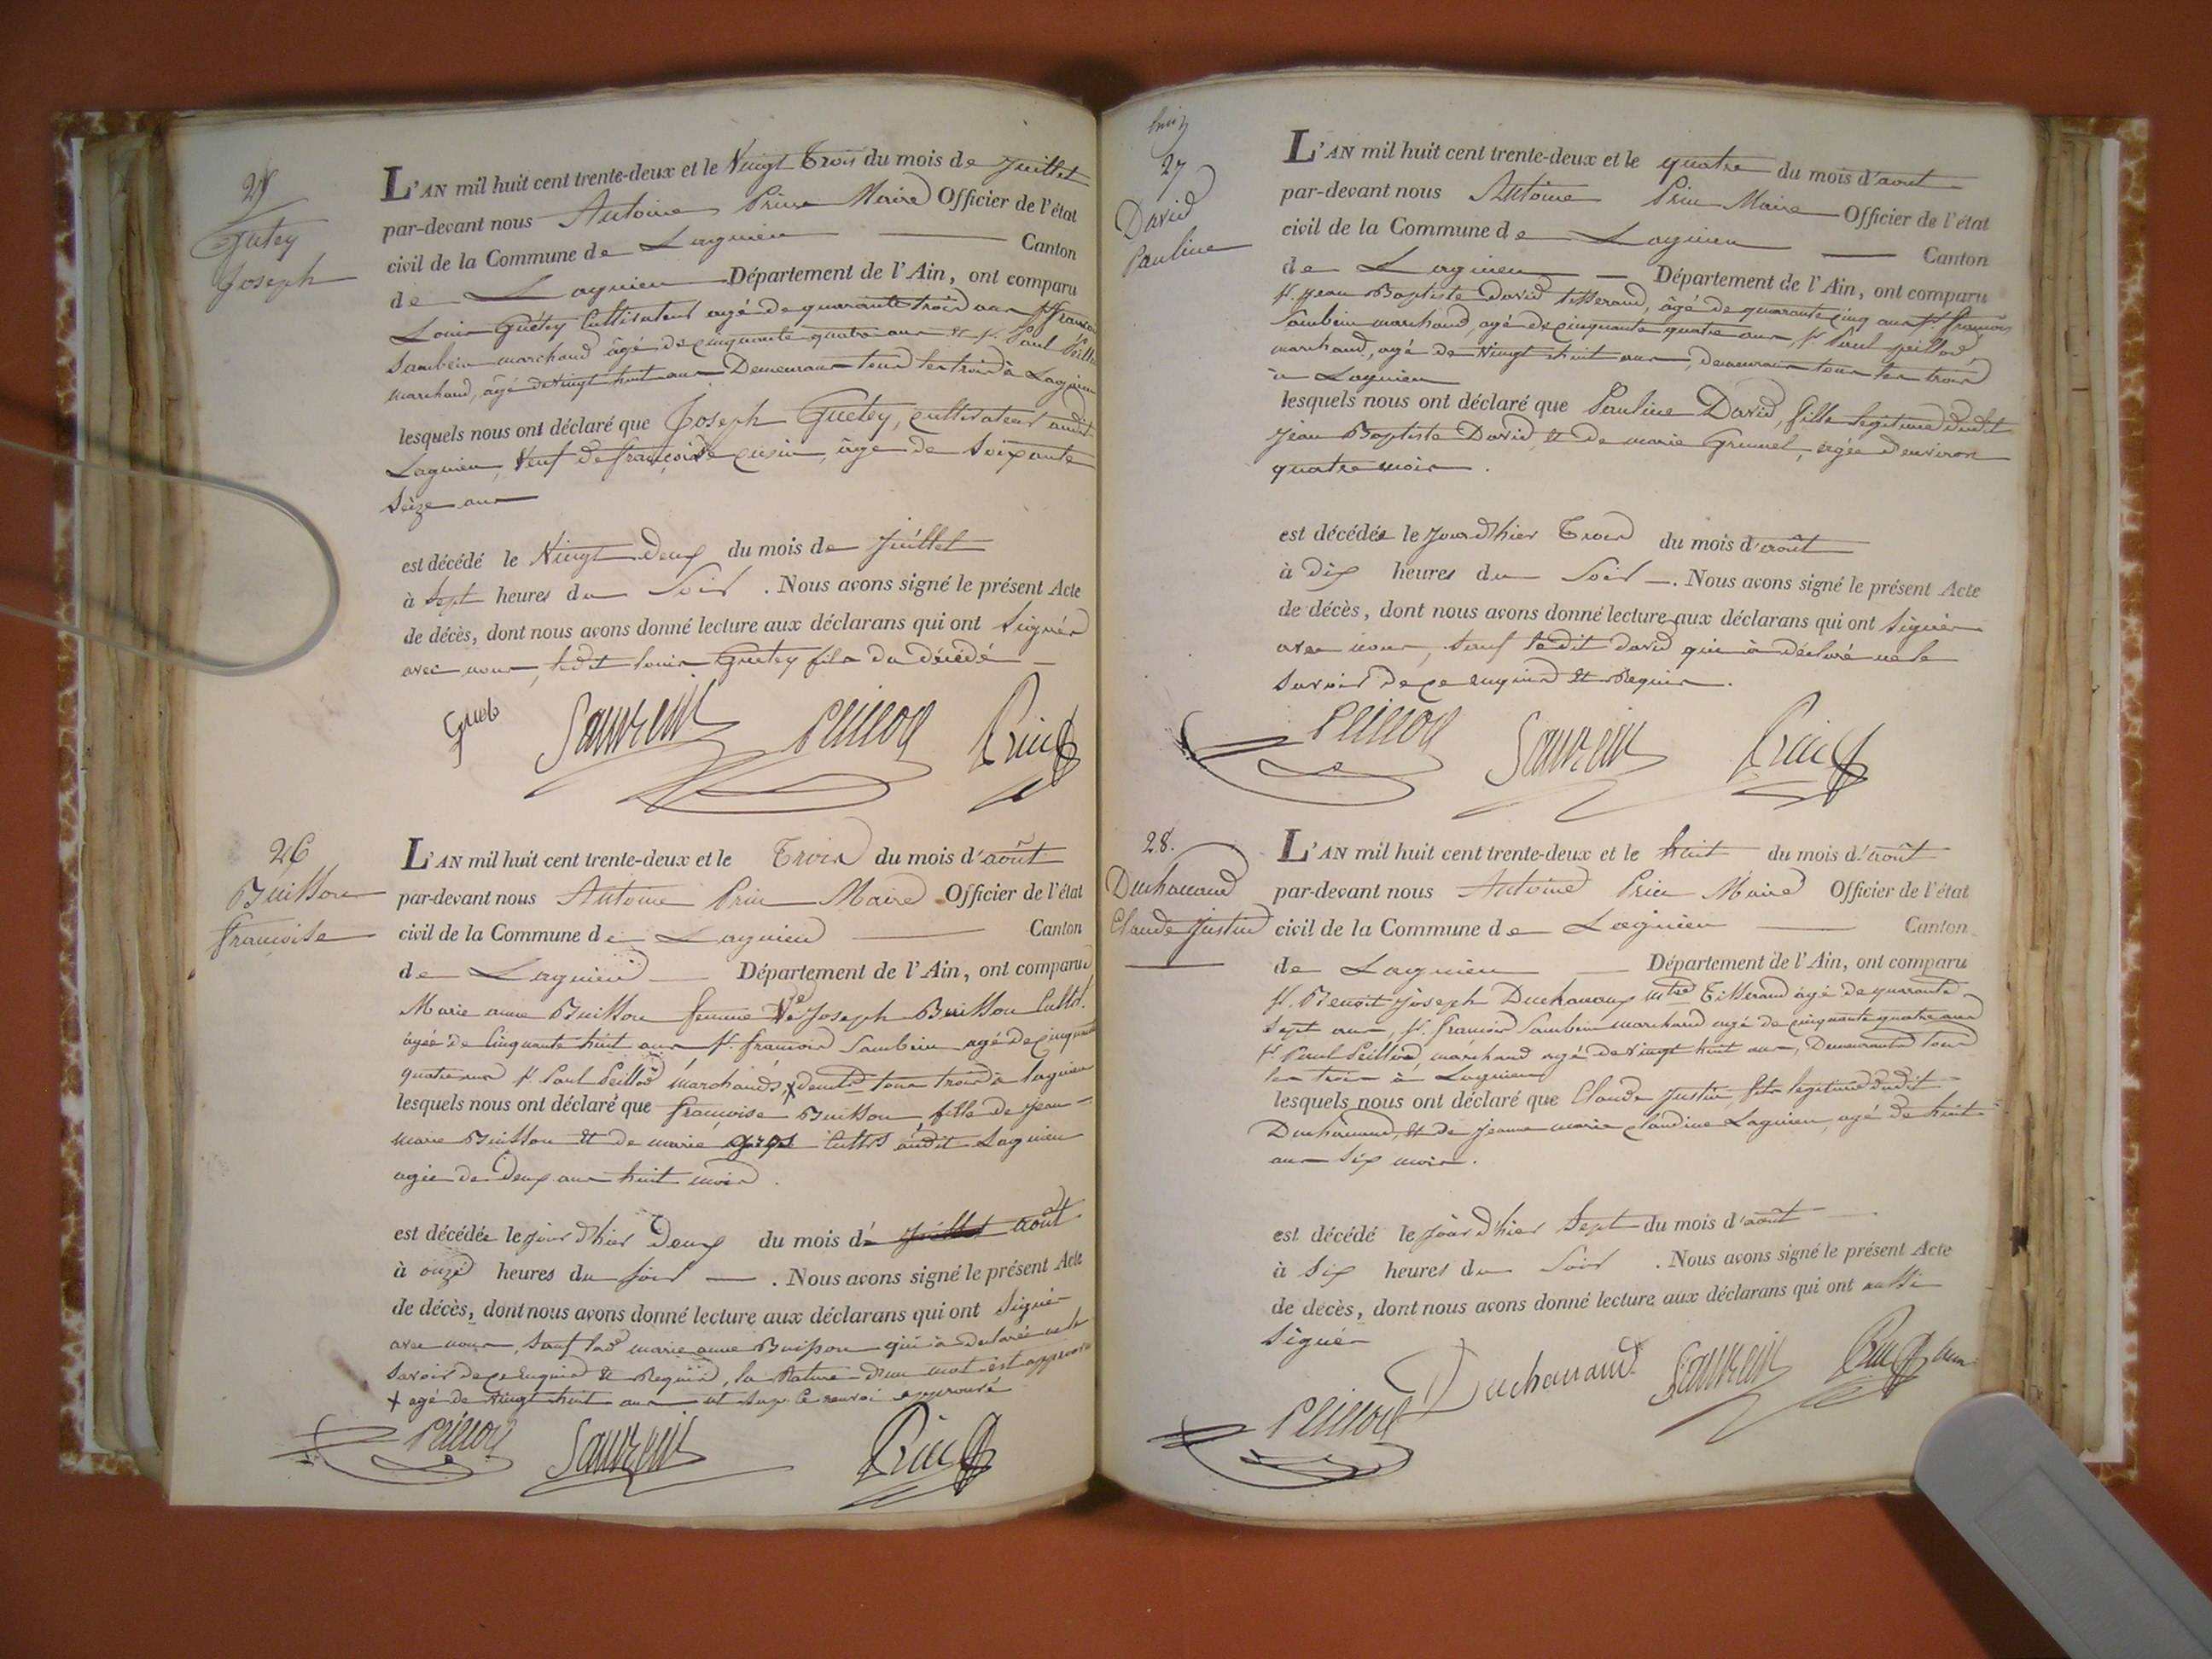 25
Gutey
Joseph
L'AN mil huit cent trente-deux et le Vingt Trois du mois de Juillet
par-devant nous Antoine Prin Maire Officier de l'état
civil de la Commune de Lagnieu Canton
de Lagnieu Département de l'Ain, ont comparu
Louis Guétey Cultivateur agé de quarante trois ans Sr françois
Sambein marchand âgé de cinquante quatre ans et Sr Paul Peillod
marchand, âgé de Vingt huit ans Demeurans tous les trois à Lagnieu
lesquels nous ont déclaré que Joseph Guetey, cultivateur audit
Lagnieu, Veuf de françoise cusin, âgé de Soixante
Seize ans
est décédé le Vingt Deux du mois de Juillet
à Sept heures du Soir . Nous avons signé le présent Acte
de décès, dont nous avons donné lecture aux déclarans qui ont Signés
avec nous, ledit louis Guetey fils du décédé
26
Buisson
françoise
L'AN mil huit cent trente-deux et le Trois du mois d'août
par-devant nous Antoine Prin Maire Officier de l'état
civil de la Commune de Lagnieu Canton
de Lagnieu Département de l'Ain, ont comparu
Marie anne Buisson femme de Joseph Buisson Cultr.
âgée de Cinquante huit ans Sr. françois Sambein agé de cinquante
quatre ans Sr. Paul Peillod marchands, x demts tous trois à lagnieu
lesquels nous ont déclaré que françoise Buisson, fille de jean
marie Buisson et de marie cultrs audit Lagnieu
agée de Deux ans huit mois.
est décédée le jour d'hier Deux du mois d' août
à onze heures du soir . Nous avons signé le présent Acte
de décès, dont nous avons donné lecture aux déclarans qui ont Signé
avec nous, Sauf lad. marie anne Buisson qui à declarée ne le
Savoir de ce Enquis et Requis, la Rature d'un mot est approuvé
x agé de Vingt huit ans ut Sup. Ce renvoi approuvé
Peillod Sambein Prin
27
David
Pauline
L'AN mil huit cent trente-deux et le quatre du mois d'aout
par-devant nous Antoine Prin Maire Officier de l'état
civil de la Commune de Lagnieu Canton
de Lagnieu Département de l'Ain, ont comparu
Sr. Jean Baptiste David tisserand, âgé de quarante cinq ans Sr. françois
Sambein marchand, agé de cinquante quatre ans Sr Paul peillod
marchand, agé de Vingt huit ans, demeurans tous les trois
à Lagnieu
lesquels nous ont déclaré que Pauline David, fille légitime dudit
Jean Baptiste David, et de marie Grumel, agée d'environ
quatre mois.
est décédée le jour d'hier Trois du mois d'août
à Dix heures du Soir . Nous avons signé le présent Acte
de décès, dont nous avons donné lecture aux déclarans qui ont Signés
avec nous, Sauf ledit David qui à déclaré ne le
Savoir de ce enquis et Requis.
Peillod Sambein Prin
28.
Duchanaud
Claude Justin
L'AN mil huit cent trente-deux et le huit du mois d'août
par-devant nous Antoine Prin Maire Officier de l'état
civil de la Commune de Lagnieu Canton
de Lagnieu Département de l'Ain, ont comparu
Sr. Benoit Joseph Duchanaud Tisserand âgé de quarante
Sept ans, Sr. françois Sambein marchand agé de cinquante quatre ans
Sr. Paul Peillod marchand agé de Vingt huit ans, Demeurants tous
les trois à Lagnieu
lesquels nous ont déclaré que Claude Justin, fils légitime dudit
Duchanaud, et de Jeanne marie claudine Lagnieu, agé de huit
ans Six mois.
est décédé le jour d'hier Sept du mois d'août
à Six heures du Soir . Nous avons signé le présent Acte
de décès, dont nous avons donné lecture aux déclarans qui ont aussi
Signés
Duchanaud Sambein Prin
Peillod